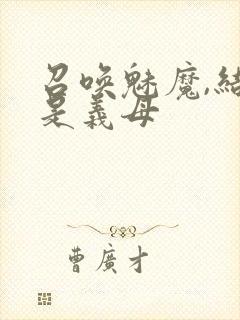 召喚魅魔,結
是義母
曹廣才